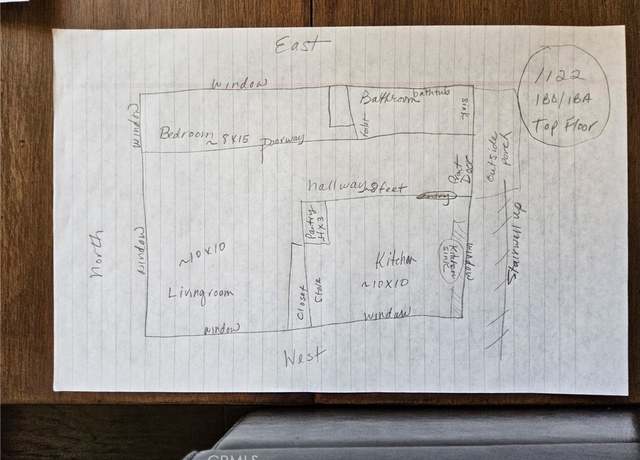 East
window
Bathroom bathtub
sink
1122
1BD/1BA
Top Floor
window
Bedroom
~ 8x15
Doorway
toilet
Front
Door
outside
porch
hallway 8 feet
North
window
~10x10
Livingroom
window
Pantry
4x3
Closet
Stove
Kitchen
~10x10
window
Kitchen
sink
window
Stairwell up
West
CRMLS